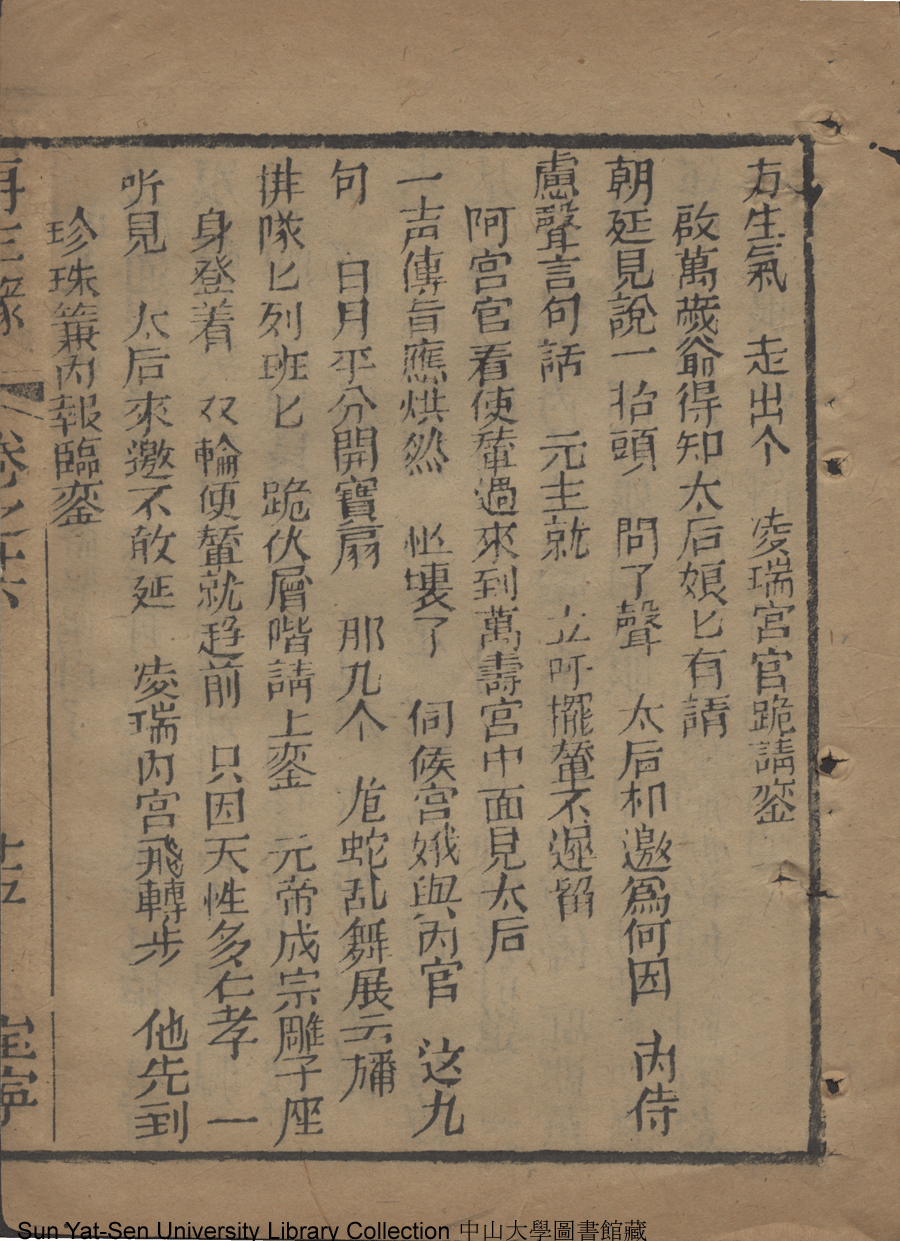 方生氣　走出个　凌瑞宮官跪請鑾
啟萬歲爺得知太后娘匕有請
朝延見說一抬頭　問了聲　太后相邀爲何因　內侍
慮聲言句話　元主就　立吩擺輦不遲留
阿宮官看使輦過來到萬壽宮中面見太后
一声傳旨應烘然　忙壊了　伺候宮娥與丙官　这九
句　日月平分開寶扇　那九个　龙蛇乱舞展云旛
排隊匕列班匕　跪伏層喈請上鑾　元帝成宗雕子座
身登着　双輪便輦就趋前　只因天性多仁孝　一
听見　太后來邀不敢延　凌瑞內宮飛轉步　他先到
珍珠簾內報臨鑾
再生緣　卷之十六　十五　寧
Sun Yat-Sen University Library Collection 中山大學圖書館藏